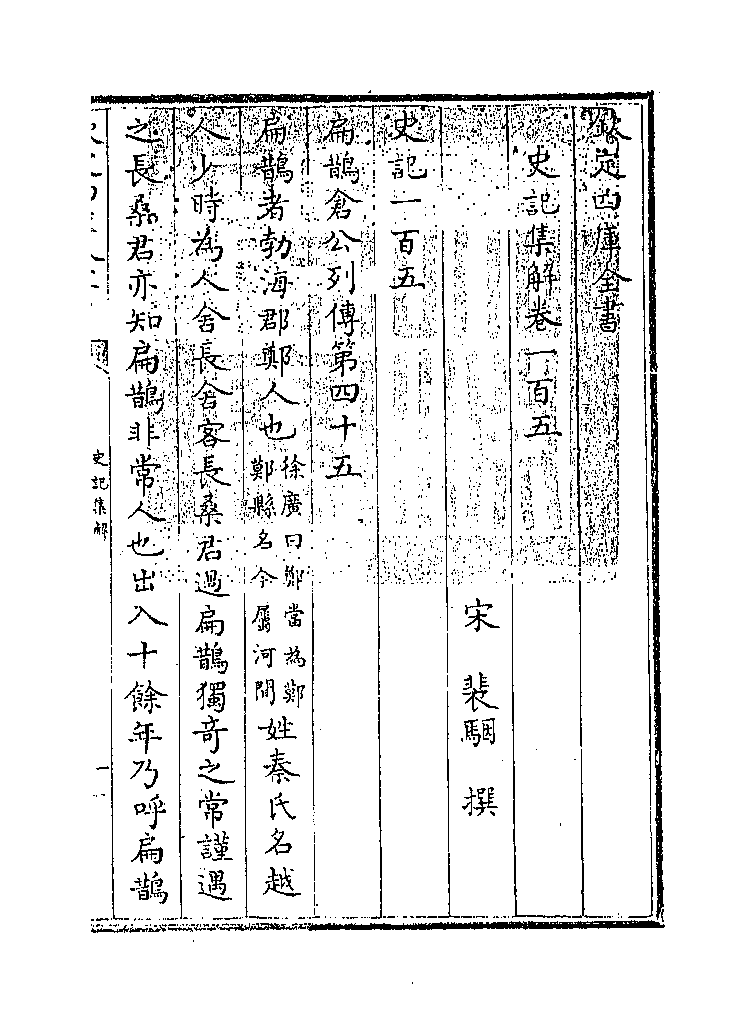 欽定四庫全書
史記集解卷一百五
宋　裴駰　撰
史記一百五
扁鵲倉公列傳第四十五
扁鵲者勃海郡鄭人也徐廣曰鄭當為鄚鄚縣名今屬河間姓秦氏名越
人少時為人舍長舍客長桑君過扁鵲獨奇之常謹遇
之長桑君亦知扁鵲非常人也出入十餘年乃呼扁鵲
史記集解
一